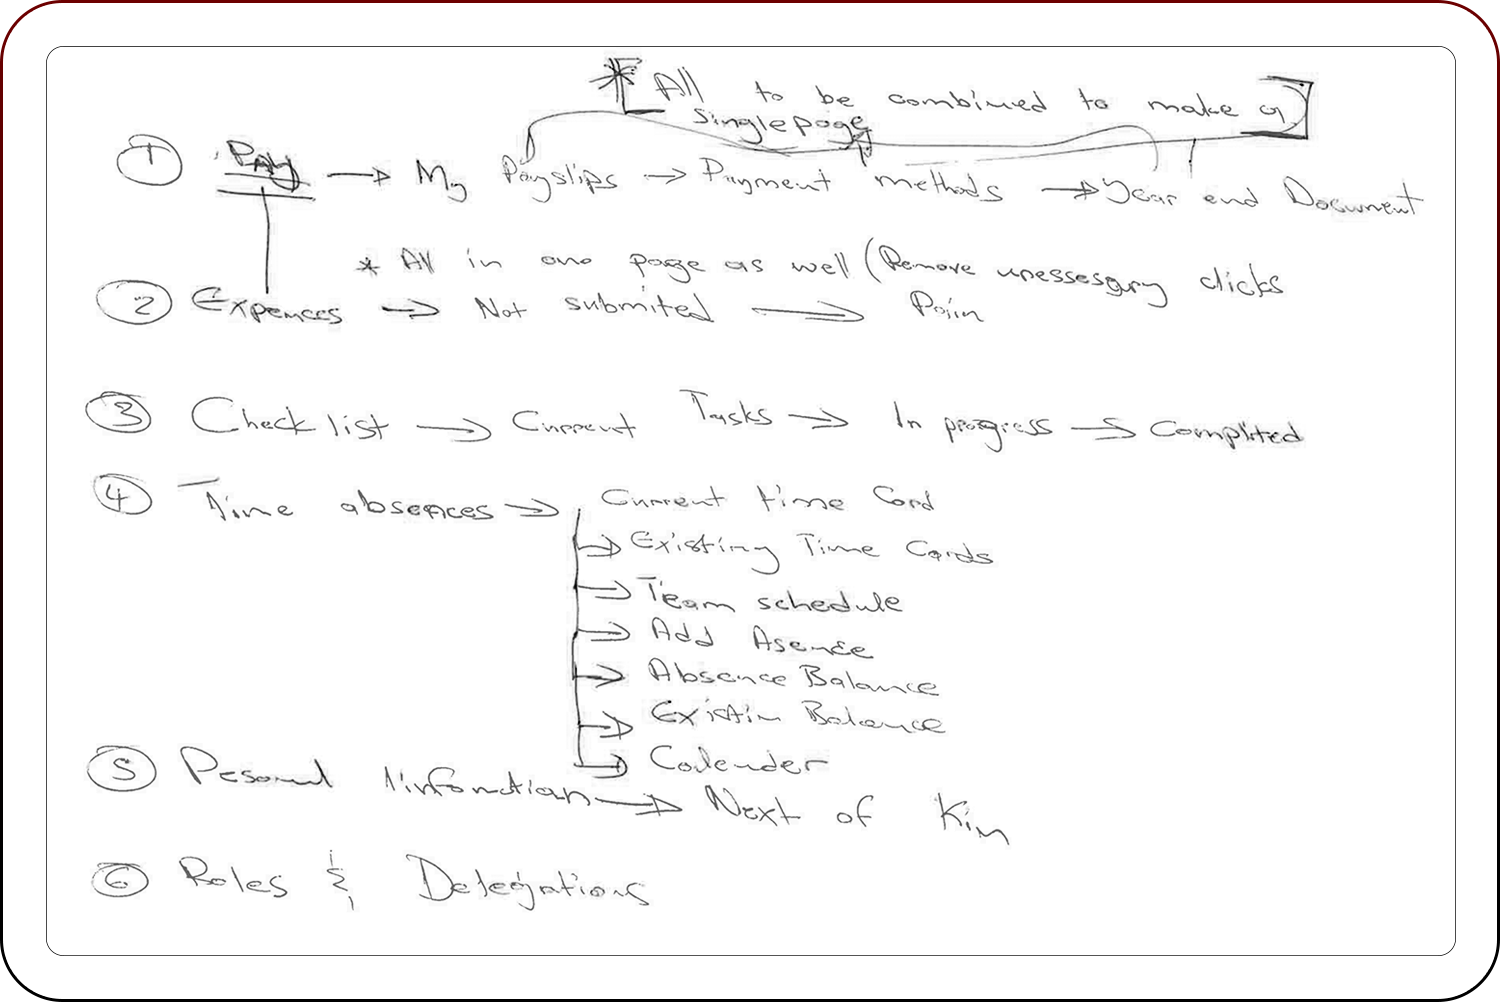 * All to be combined to make a
single page
1 Pay → My Payslips → Payment methods → Year end Document
* All in one page as well (Remove unessesary clicks
2 Expences → Not submited →
3 Check list → Current Tasks → In progress → Complited
4 Time absences → Current time Card
→ Existing Time Cards
→ Team schedule
→ Add Asence
→ Absence Balance
→ Existin Balance
→ Calender
5 Pesonal infomation → Next of Kin
6 Roles & Delegations